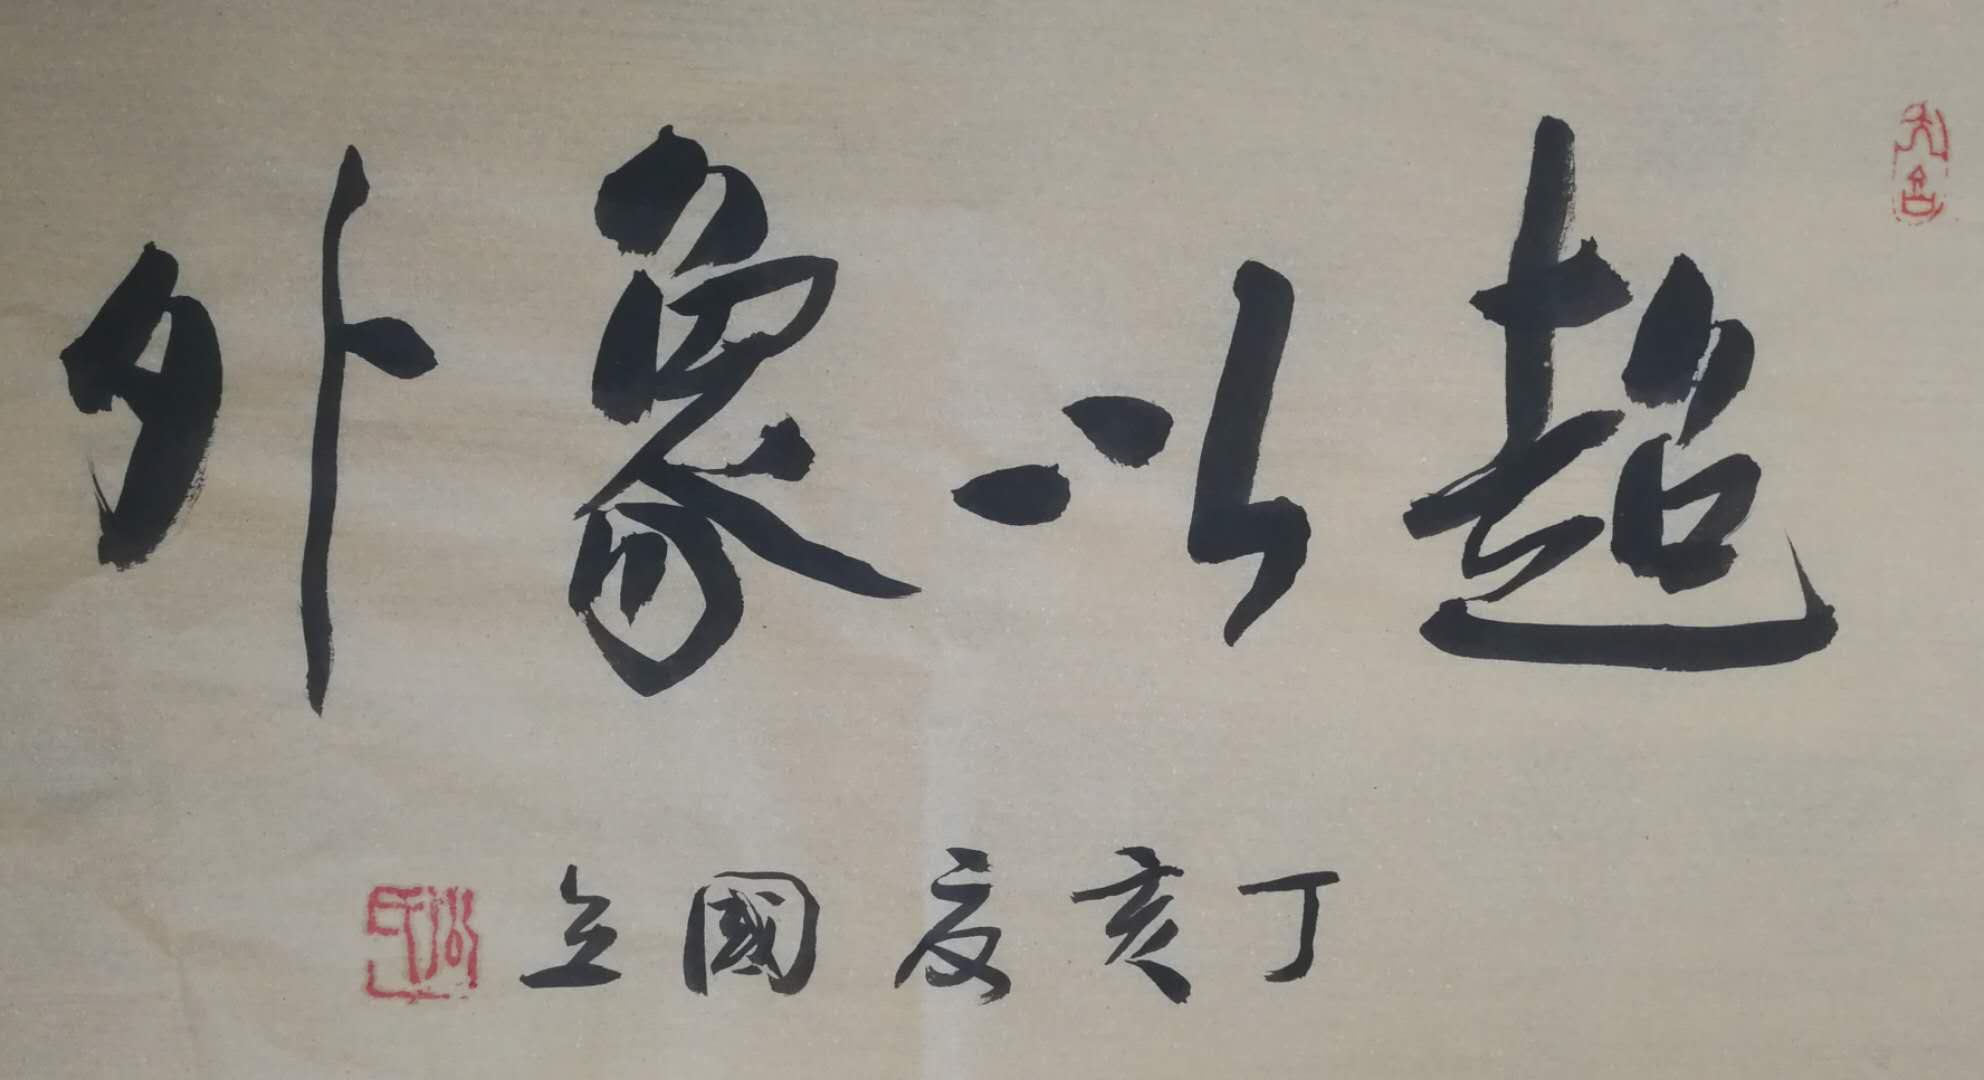 超以象外
丁亥夏國立